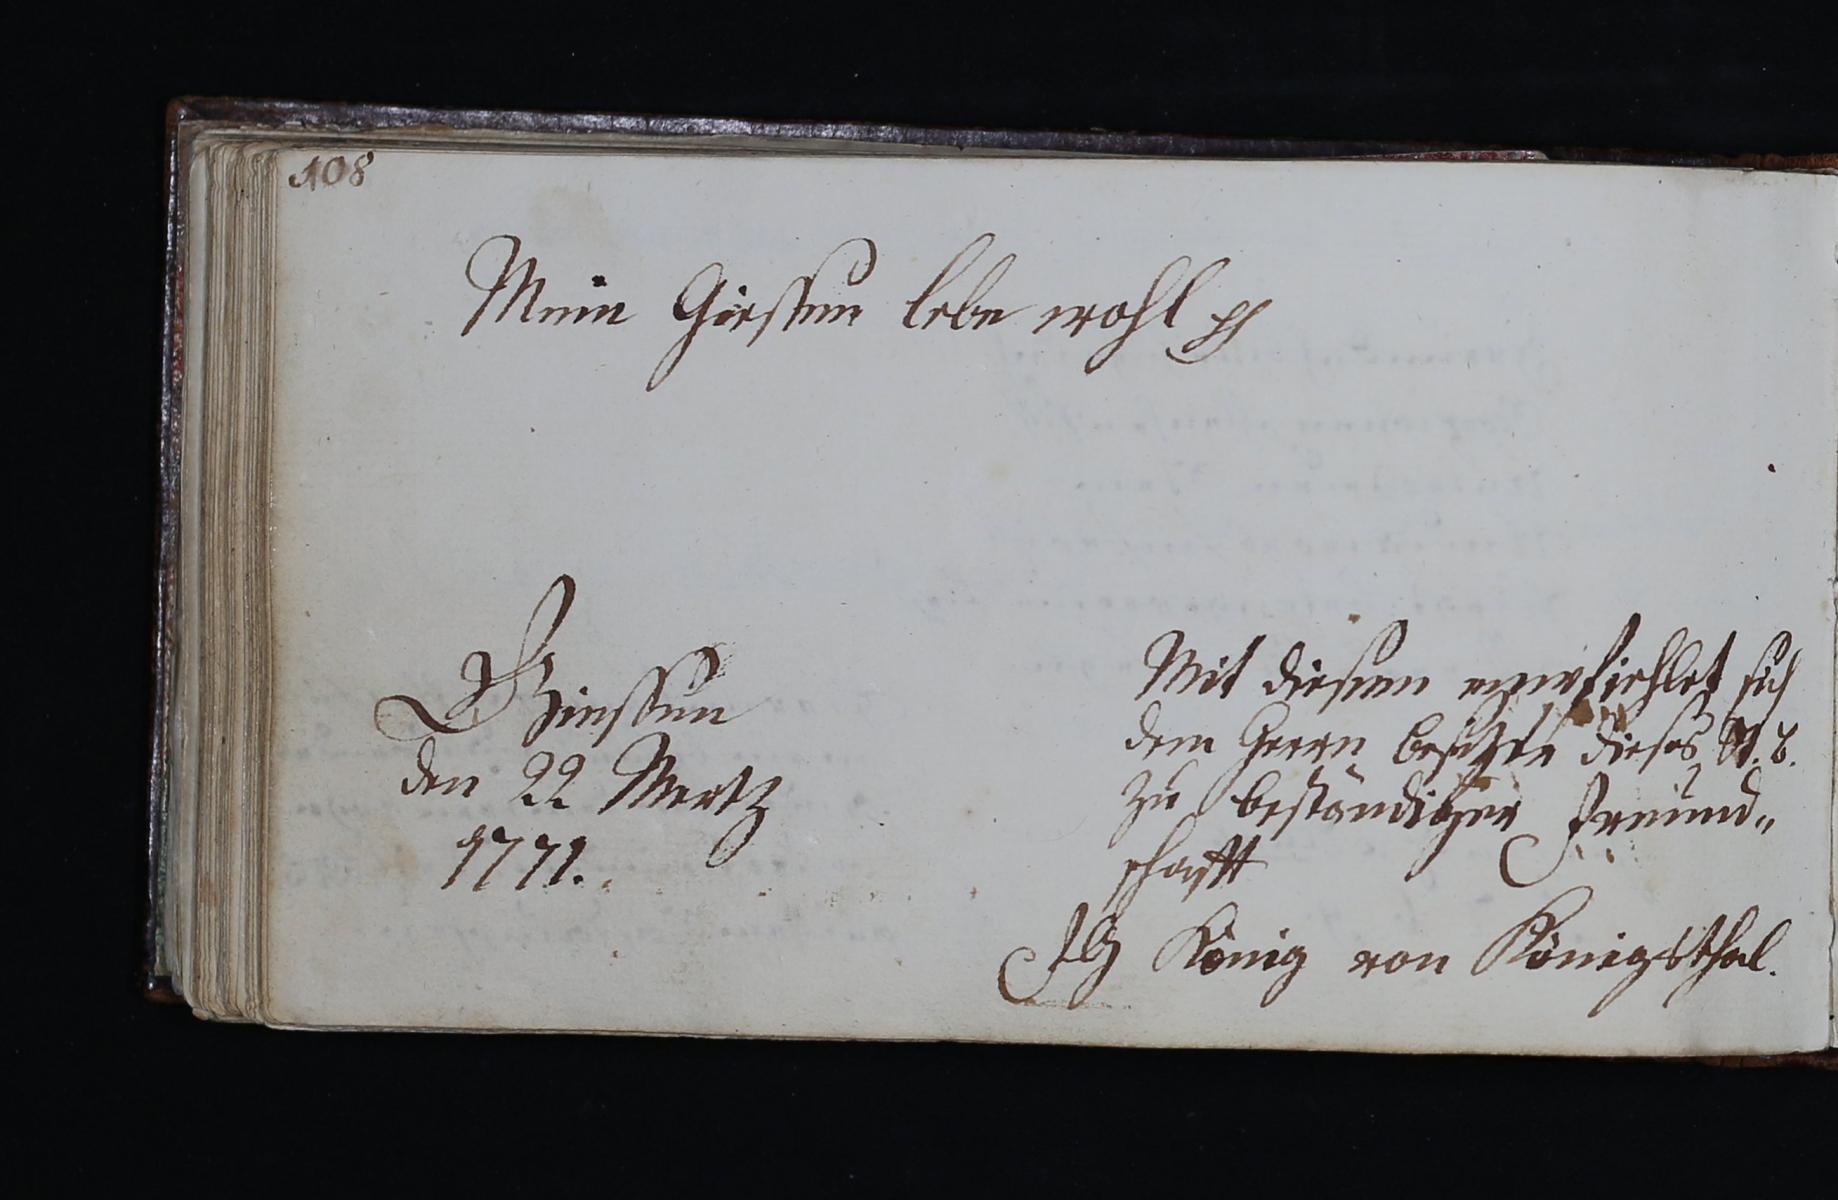 108
Mein Giessen lebe wohl pp
Giessen
den 22 Mertz
1771.
Mit diesem empfiehlet sich
dem Herrn besitzer dieses St. b.
zu beständiger Freund„
schafft
JG König von Königsthal.